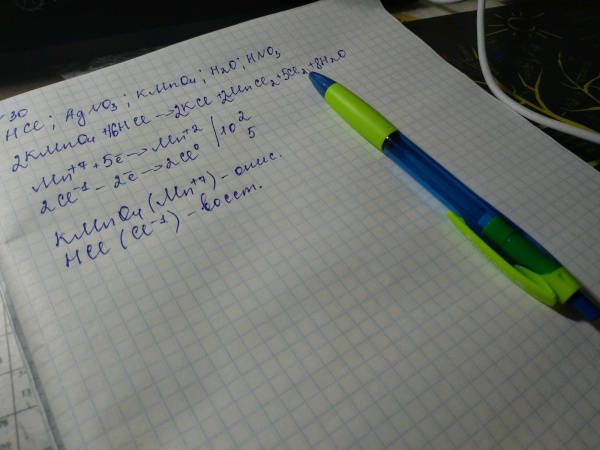 30
HCl; AgNO3; KMnO4; H2O; HNO3
2KMnO4 +16HCl → 2KCl +2MnCl2+5Cl2+8H2O
Mn+7 + 5ē → Mn+2 | 10 2
2Cl-1 - 2ē → 2Cl0 5
KMnO4 (Mn+7) - окис.
HCl (Cl-1) - восст.